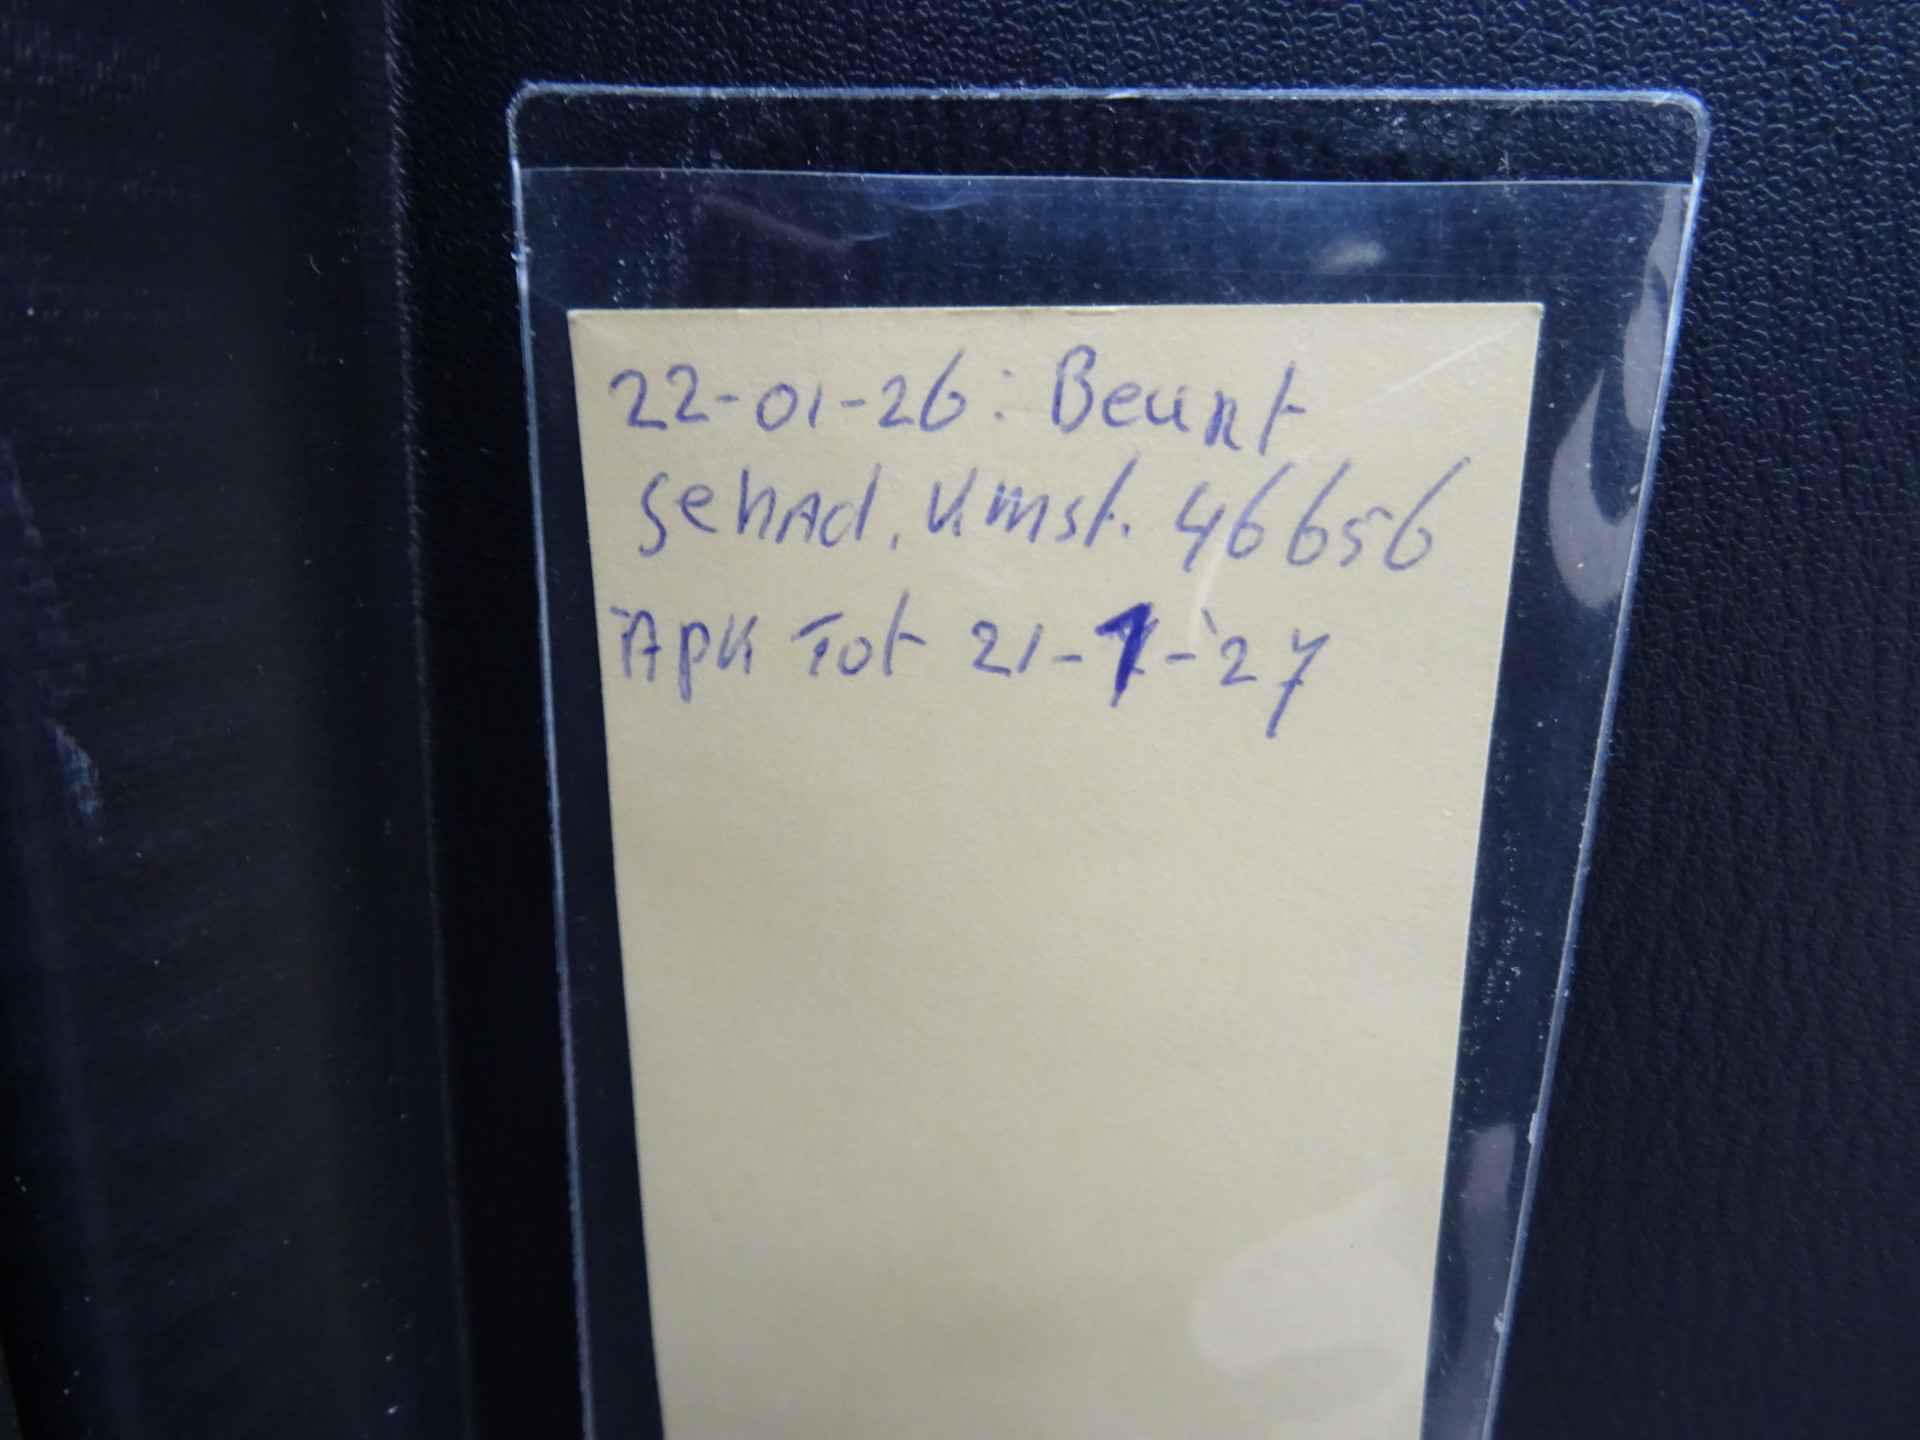 22-01-26: Beurt
gehad, Kmst. 46656
APK Tot 21-1-'27